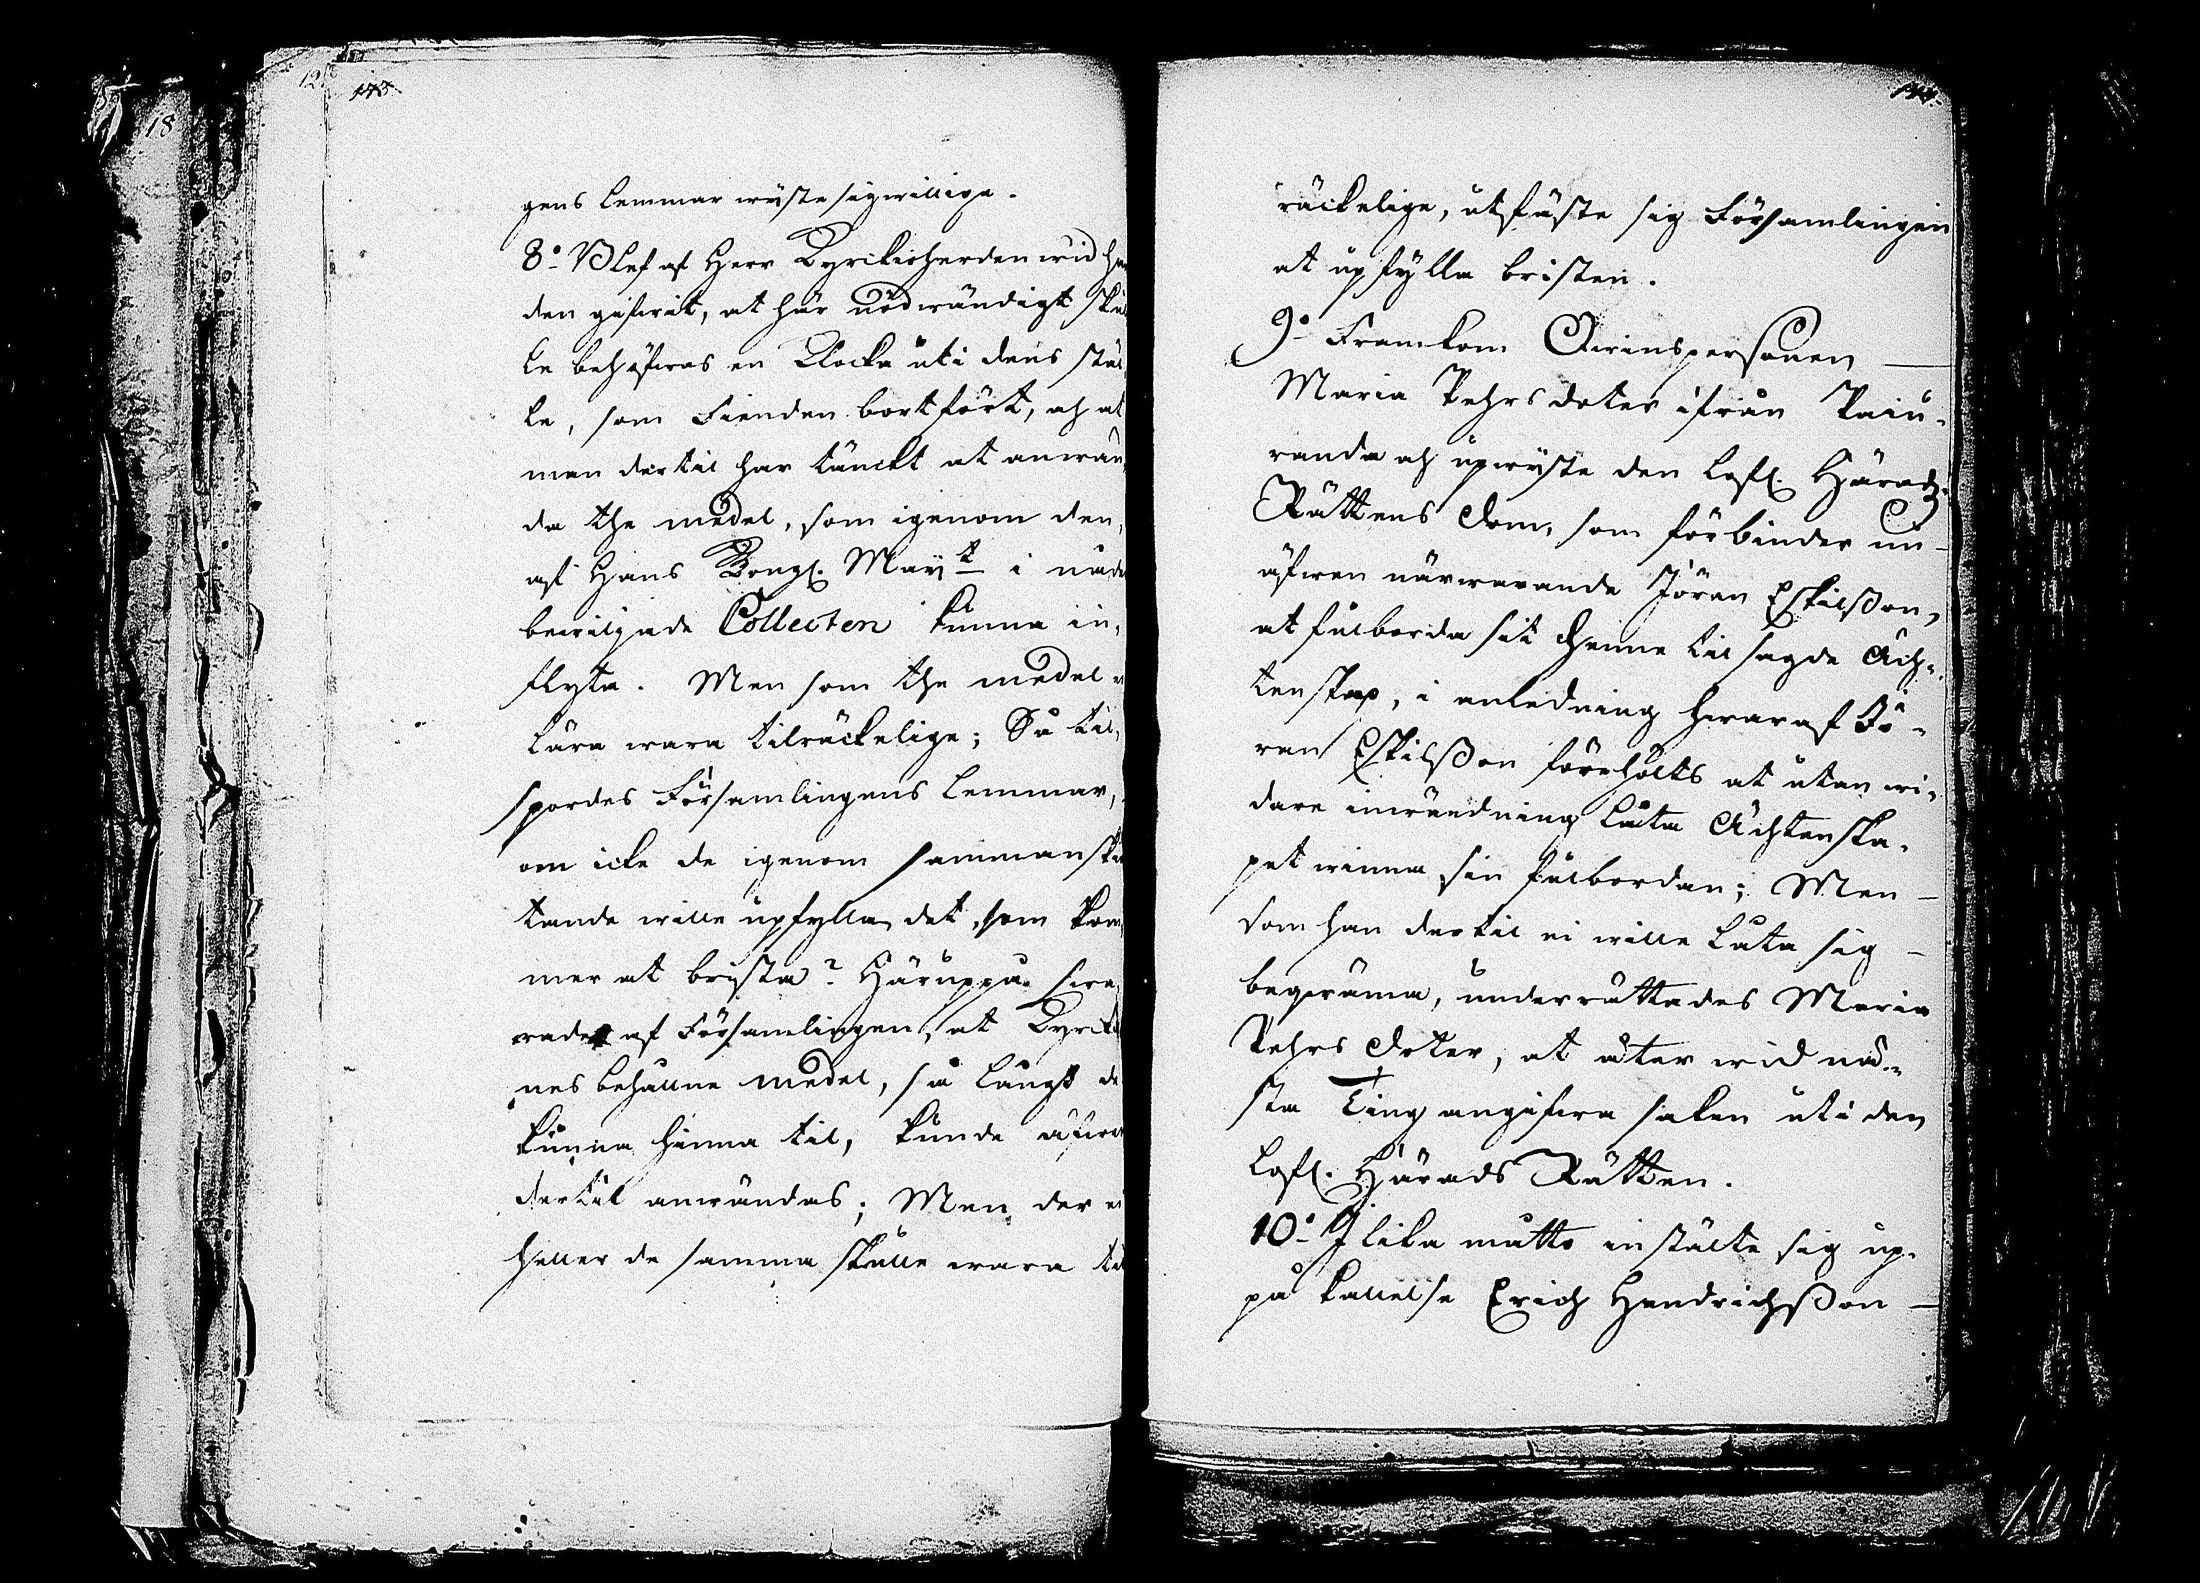 18
173.
gens lemmar wyste sig willige.
8:o Blef af Herr Kyrkioherden wid
den gifwit, at här nödwändigt skul
le behöfwas en Klocka uti dens stäl,
le, som Fienden bortfört, och at
man dertil har tänckt at anwän,
da the medel, som igenom den,
af Hans Kongl. May:t i nåde
bewilgade Collecten kunna in,
flyta. Men som the medel ei
lära wara tilräckelige; Så til,
spordes Församlingens lemmar,
om icke de igenom sammanskå
tande wille upfylla det, som kom
mer at brista? Häruppå swa,
rades af Församlingen, at Kyrkio
nes behållne medel, så långt de
kunna hinna til, kunde äfwen
dertil anwändas; Men der ei
heller de samma skulle wara til
räckelige, utfäste sig Församlingen
at upfylla bristen.
9:o Framkom Qwinspersonen
Maria Pehrsdoter ifrån Paiu-
randa och upwyste den Lofl. Härads
Rättens Dom, som förbinder un-
äfwen närwarande Jöran Eskilsson,
at fulborda sit henne til sagde Äch-
tenskap, i anledning hwaraf Jö-
ran Eskilsson förehölts at utan wi-
dare inwändning låta Ächtenska-
pet winna sin fulbordan; Men
som han dertil ei wille låta sig
beqwäma, underrättades Maria
Pehrs doter, at åter wid näs-
sta Ting angifwa saken uti den
Lofl. Härads Rätten.
10:o I lika motto instälte sig up-
på kallelse Erich Hendrichsson